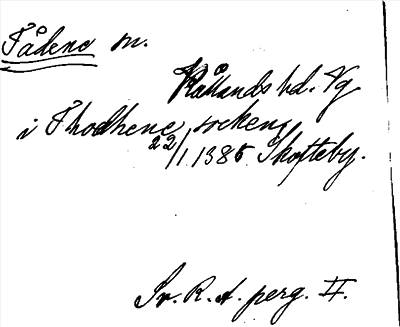 Tådene sn.
Kållands hd. Vg
i Thodhene socken
22/1 1385 Skofteby.
Sv. R. A. perg. II.